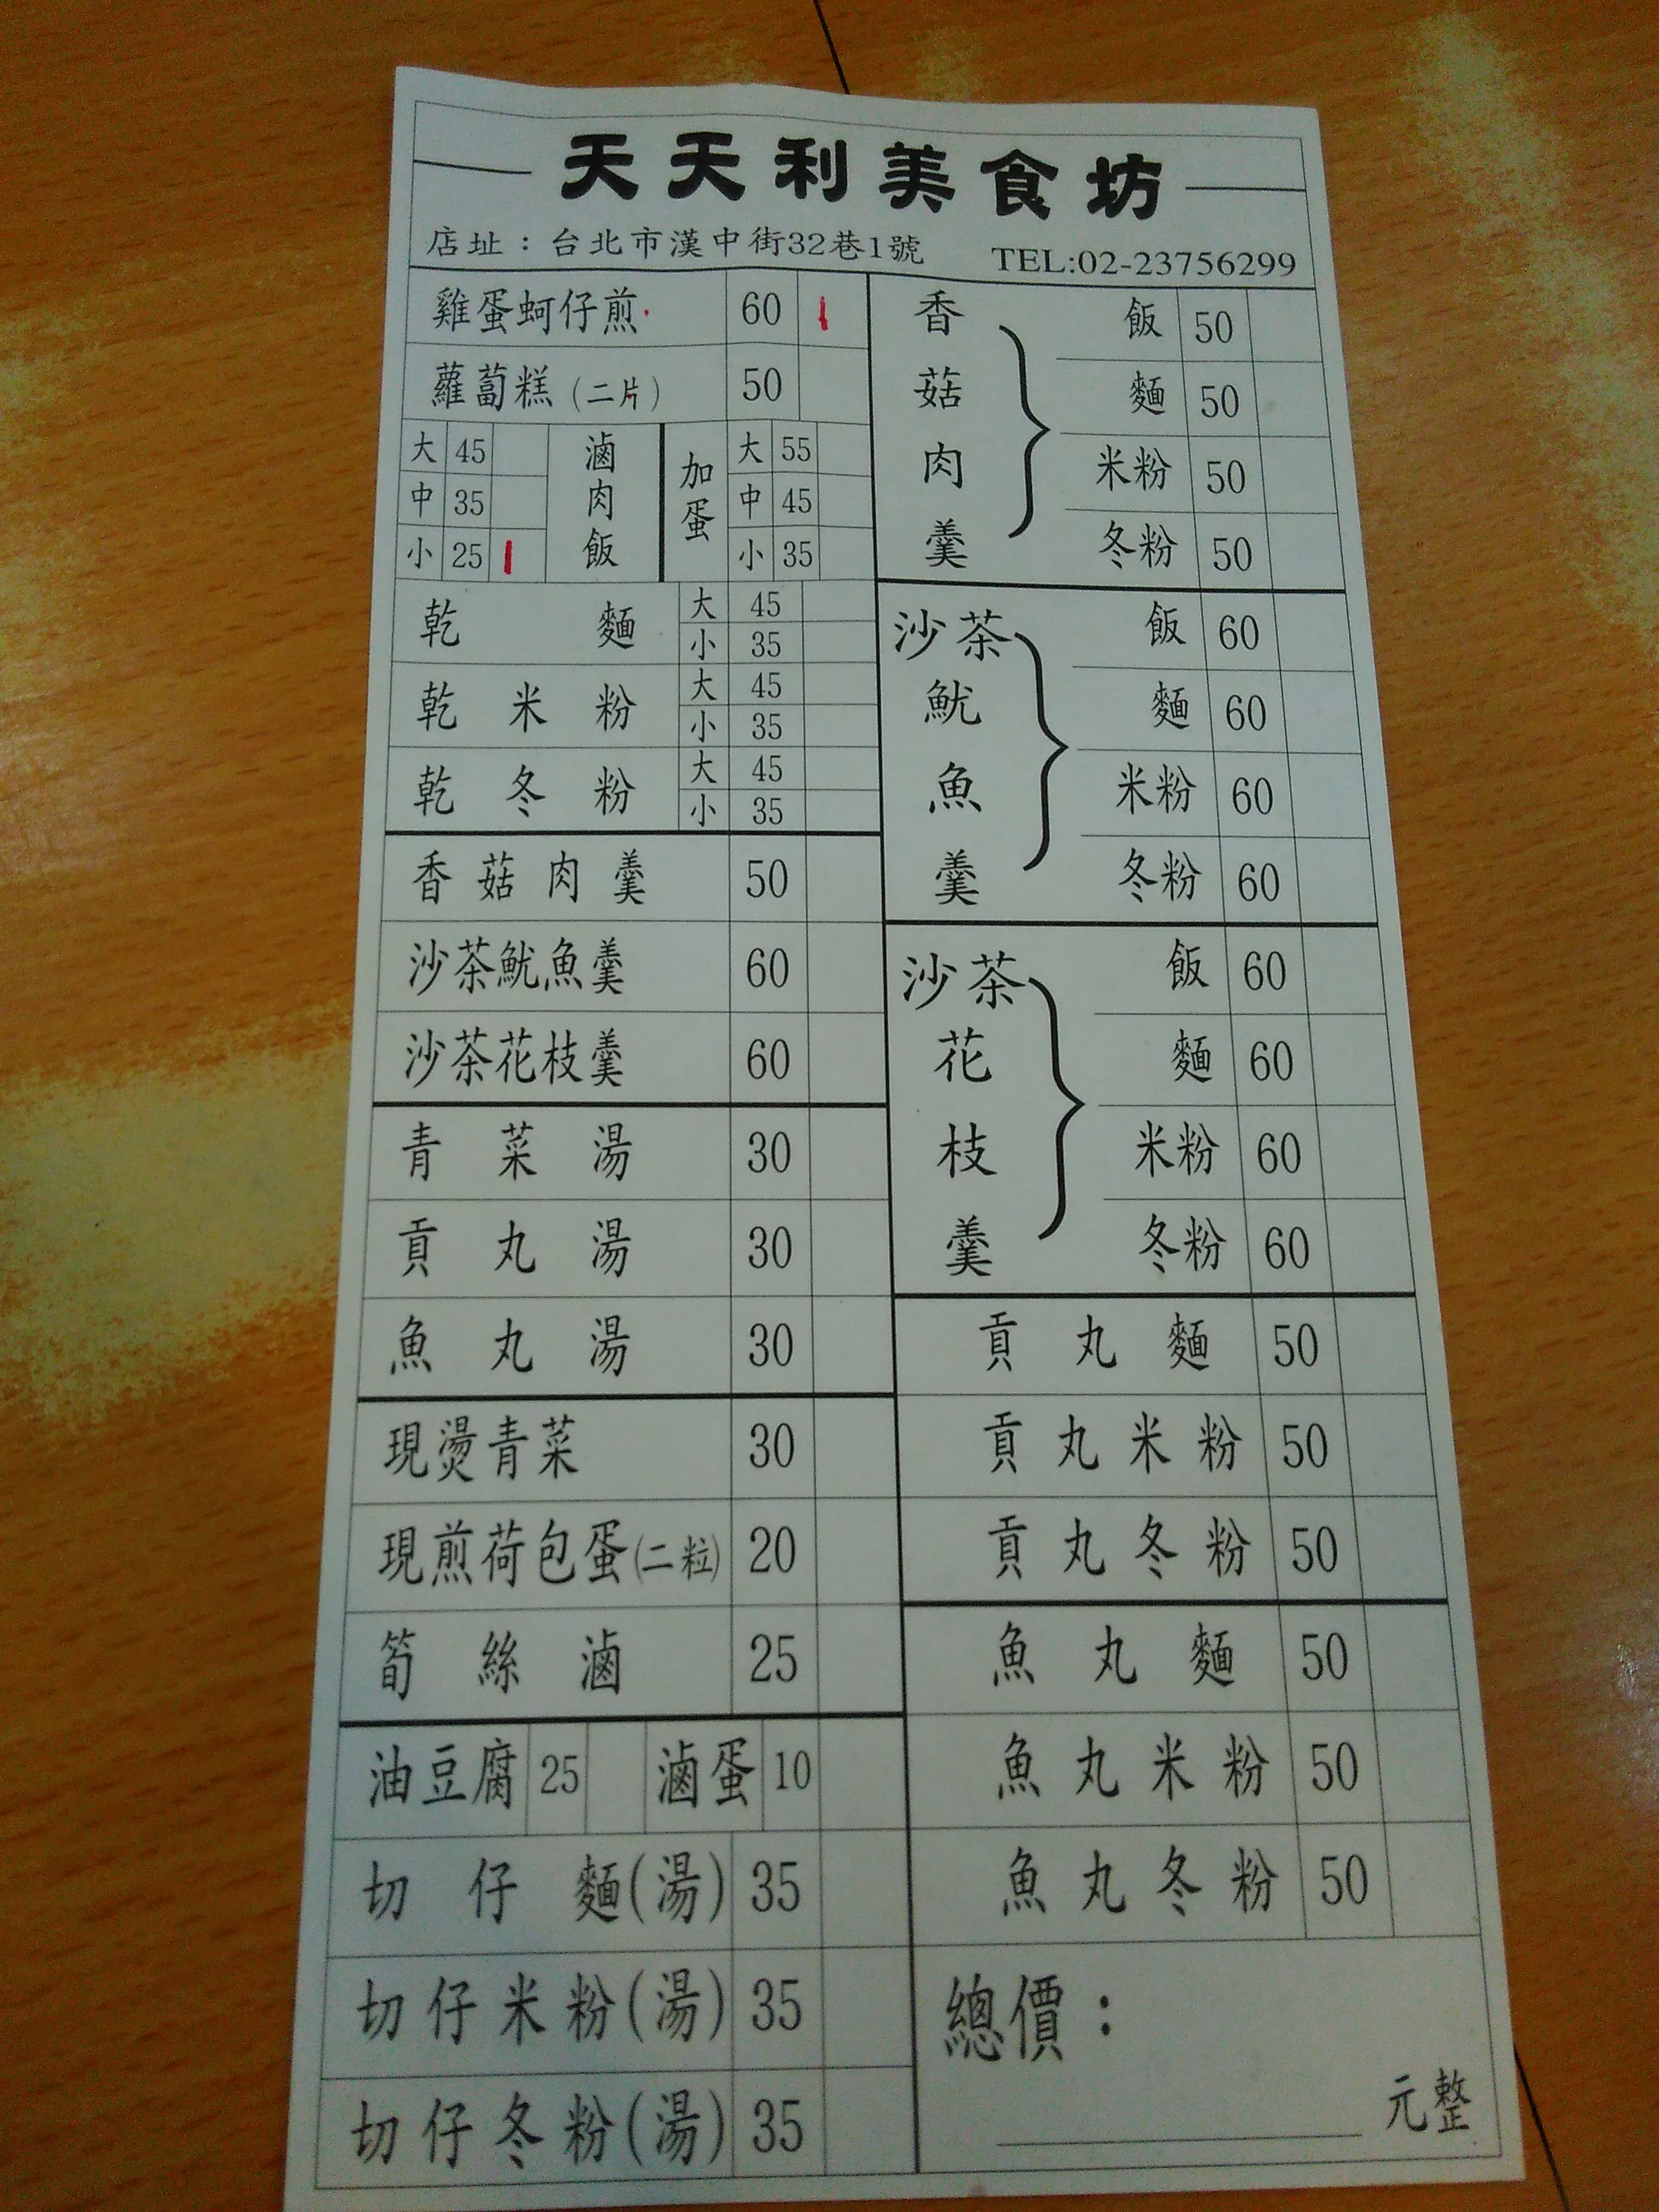 天天利美食坊
店址：台北市漢中街32巷1號 TEL:02-23756299
雞蛋蚵仔煎 60 1
蘿蔔糕（二片） 50
滷肉飯
大 45
中 35
小 25 1
加蛋
大 55
中 45
小 35
乾麵 大 45
小 35
乾米粉 大 45
小 35
乾冬粉 大 45
小 35
香菇肉羹 50
沙茶魷魚羹 60
沙茶花枝羹 60
青菜湯 30
貢丸湯 30
魚丸湯 30
現燙青菜 30
現煎荷包蛋(二粒) 20
筍絲滷 25
油豆腐 25 滷蛋 10
切仔麵(湯) 35
切仔米粉(湯) 35
切仔冬粉(湯) 35
香菇肉羹
飯 50
麵 50
米粉 50
冬粉 50
沙茶魷魚羹
飯 60
麵 60
米粉 60
冬粉 60
沙茶花枝羹
飯 60
麵 60
米粉 60
冬粉 60
貢丸麵 50
貢丸米粉 50
貢丸冬粉 50
魚丸麵 50
魚丸米粉 50
魚丸冬粉 50
總價：
元整